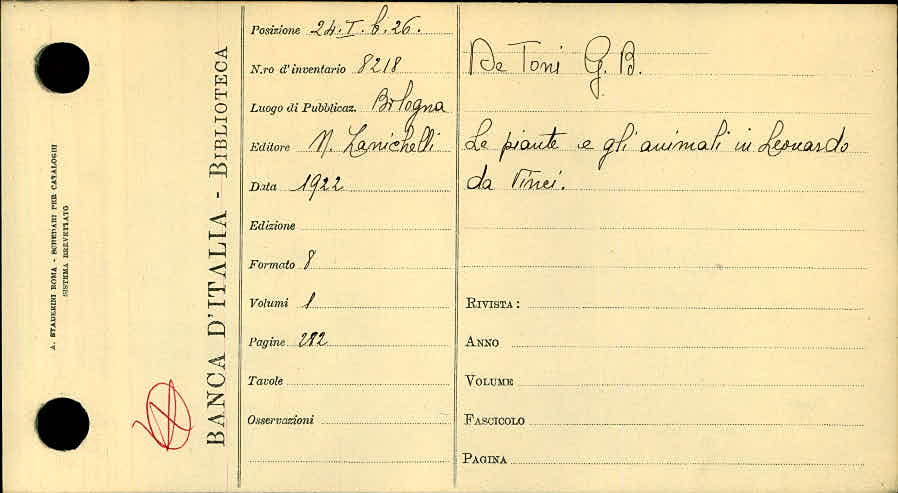 A. STADERINI ROMA - SCHEDARI PER CATALOGHI
SISTEMA BREVETTATO
BANCA D'ITALIA - BIBLIOTECA
Posizione 24. I. b. 26.
N.ro d'inventario 8218
Luogo di Pubblicaz. Bologna
Editore N. Zanichelli
Data 1922
Edizione
Formato 8
Volumi 1
Pagine 282
Tavole
Osservazioni
De Toni G. B.
Le piante e gli animali in Leonardo
da Vinci.
RIVISTA:
ANNO
VOLUME
FASCICOLO
PAGINA